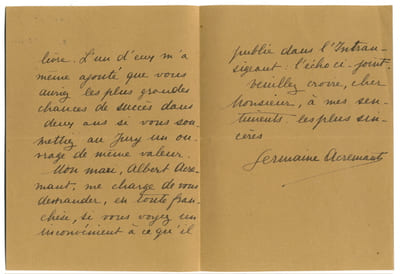 livre. L'un d'eux m'a
même ajouté que vous
auriez les plus grandes
chances de succès dans
deux ans si vous sou-
mettiez au Jury un ou-
vrage de même valeur.
Mon mari, Albert Acre-
mant, me charge de vous
demander, en toute fran-
chise, si vous voyez un
inconvénient à ce qu'il
publie dans l'Intran-
sigeant : l'écho ci-joint.
Veuillez croire, cher
Monsieur, à mes sen-
timents les plus sin-
cères
Germaine Acremant